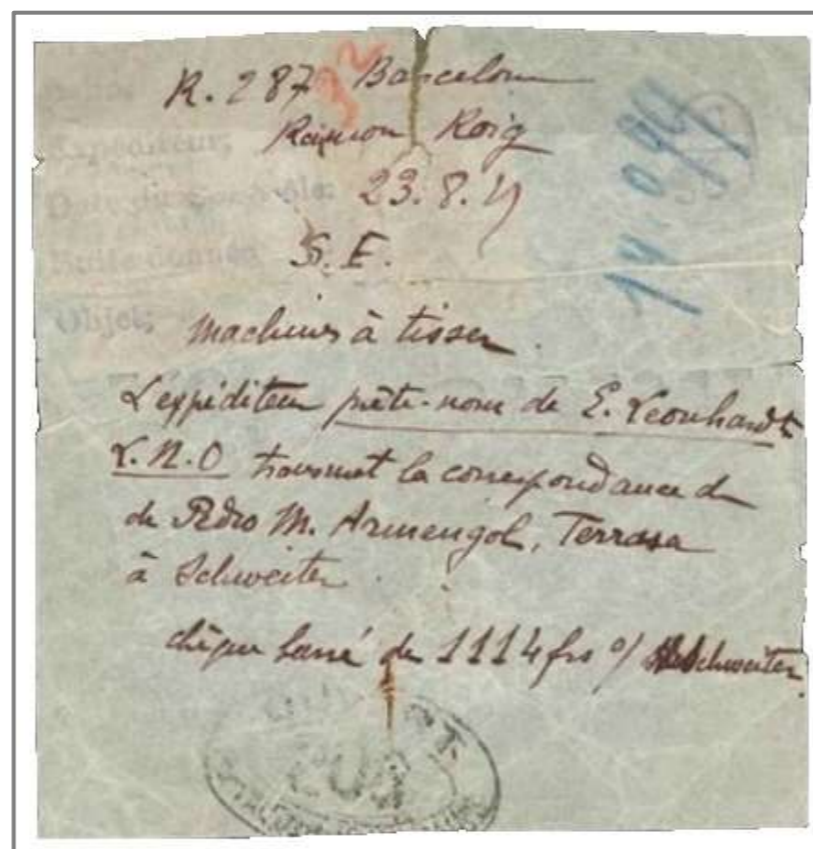 R. 287 Barcelone
32
Raimon Roig
23.8.17
S. E.
14.090
Expéditeur;
Date du contrôle:
Suite donnée
Objet;
Machines à tisser
L'expéditeur prête-nom de E. Leonhardt
L.N.O transmet la correspondance de
de Pedro M. Armengol, Terrasa
à Schweiter
chèque barré de 1114 frs o/ Schweiter.